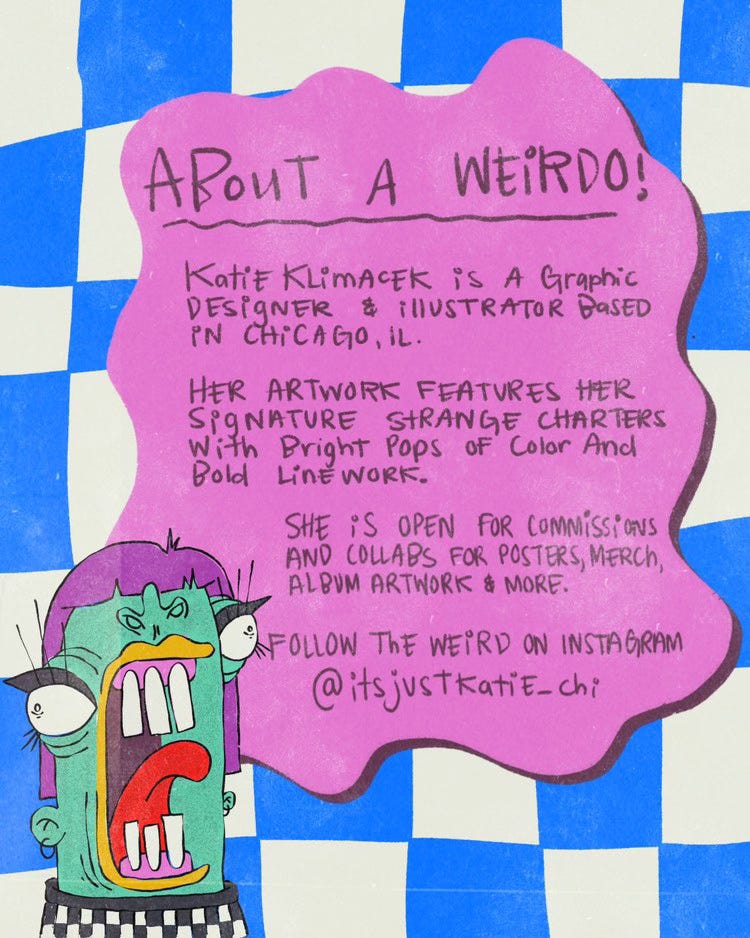 ABOUT A WEIRDO!
KATIE KLIMACEK is A Graphic
DESIGNER & illUSTRATOR BASED
iN CHiCAGO, iL.
HER ARTWORK FEATURES HER
SigNATURE STRANGE CHARTERS
With Bright Pops of Color And
Bold LiNEWORK.
SHE iS OPEN FOR COMMISSIONS
AND COLLABS FOR POSTERS, MERCH,
ALBUM ARTWORK & MORE.
FOLLOW The WEiRD ON INSTAGRAM
@itsjustkatie_chi